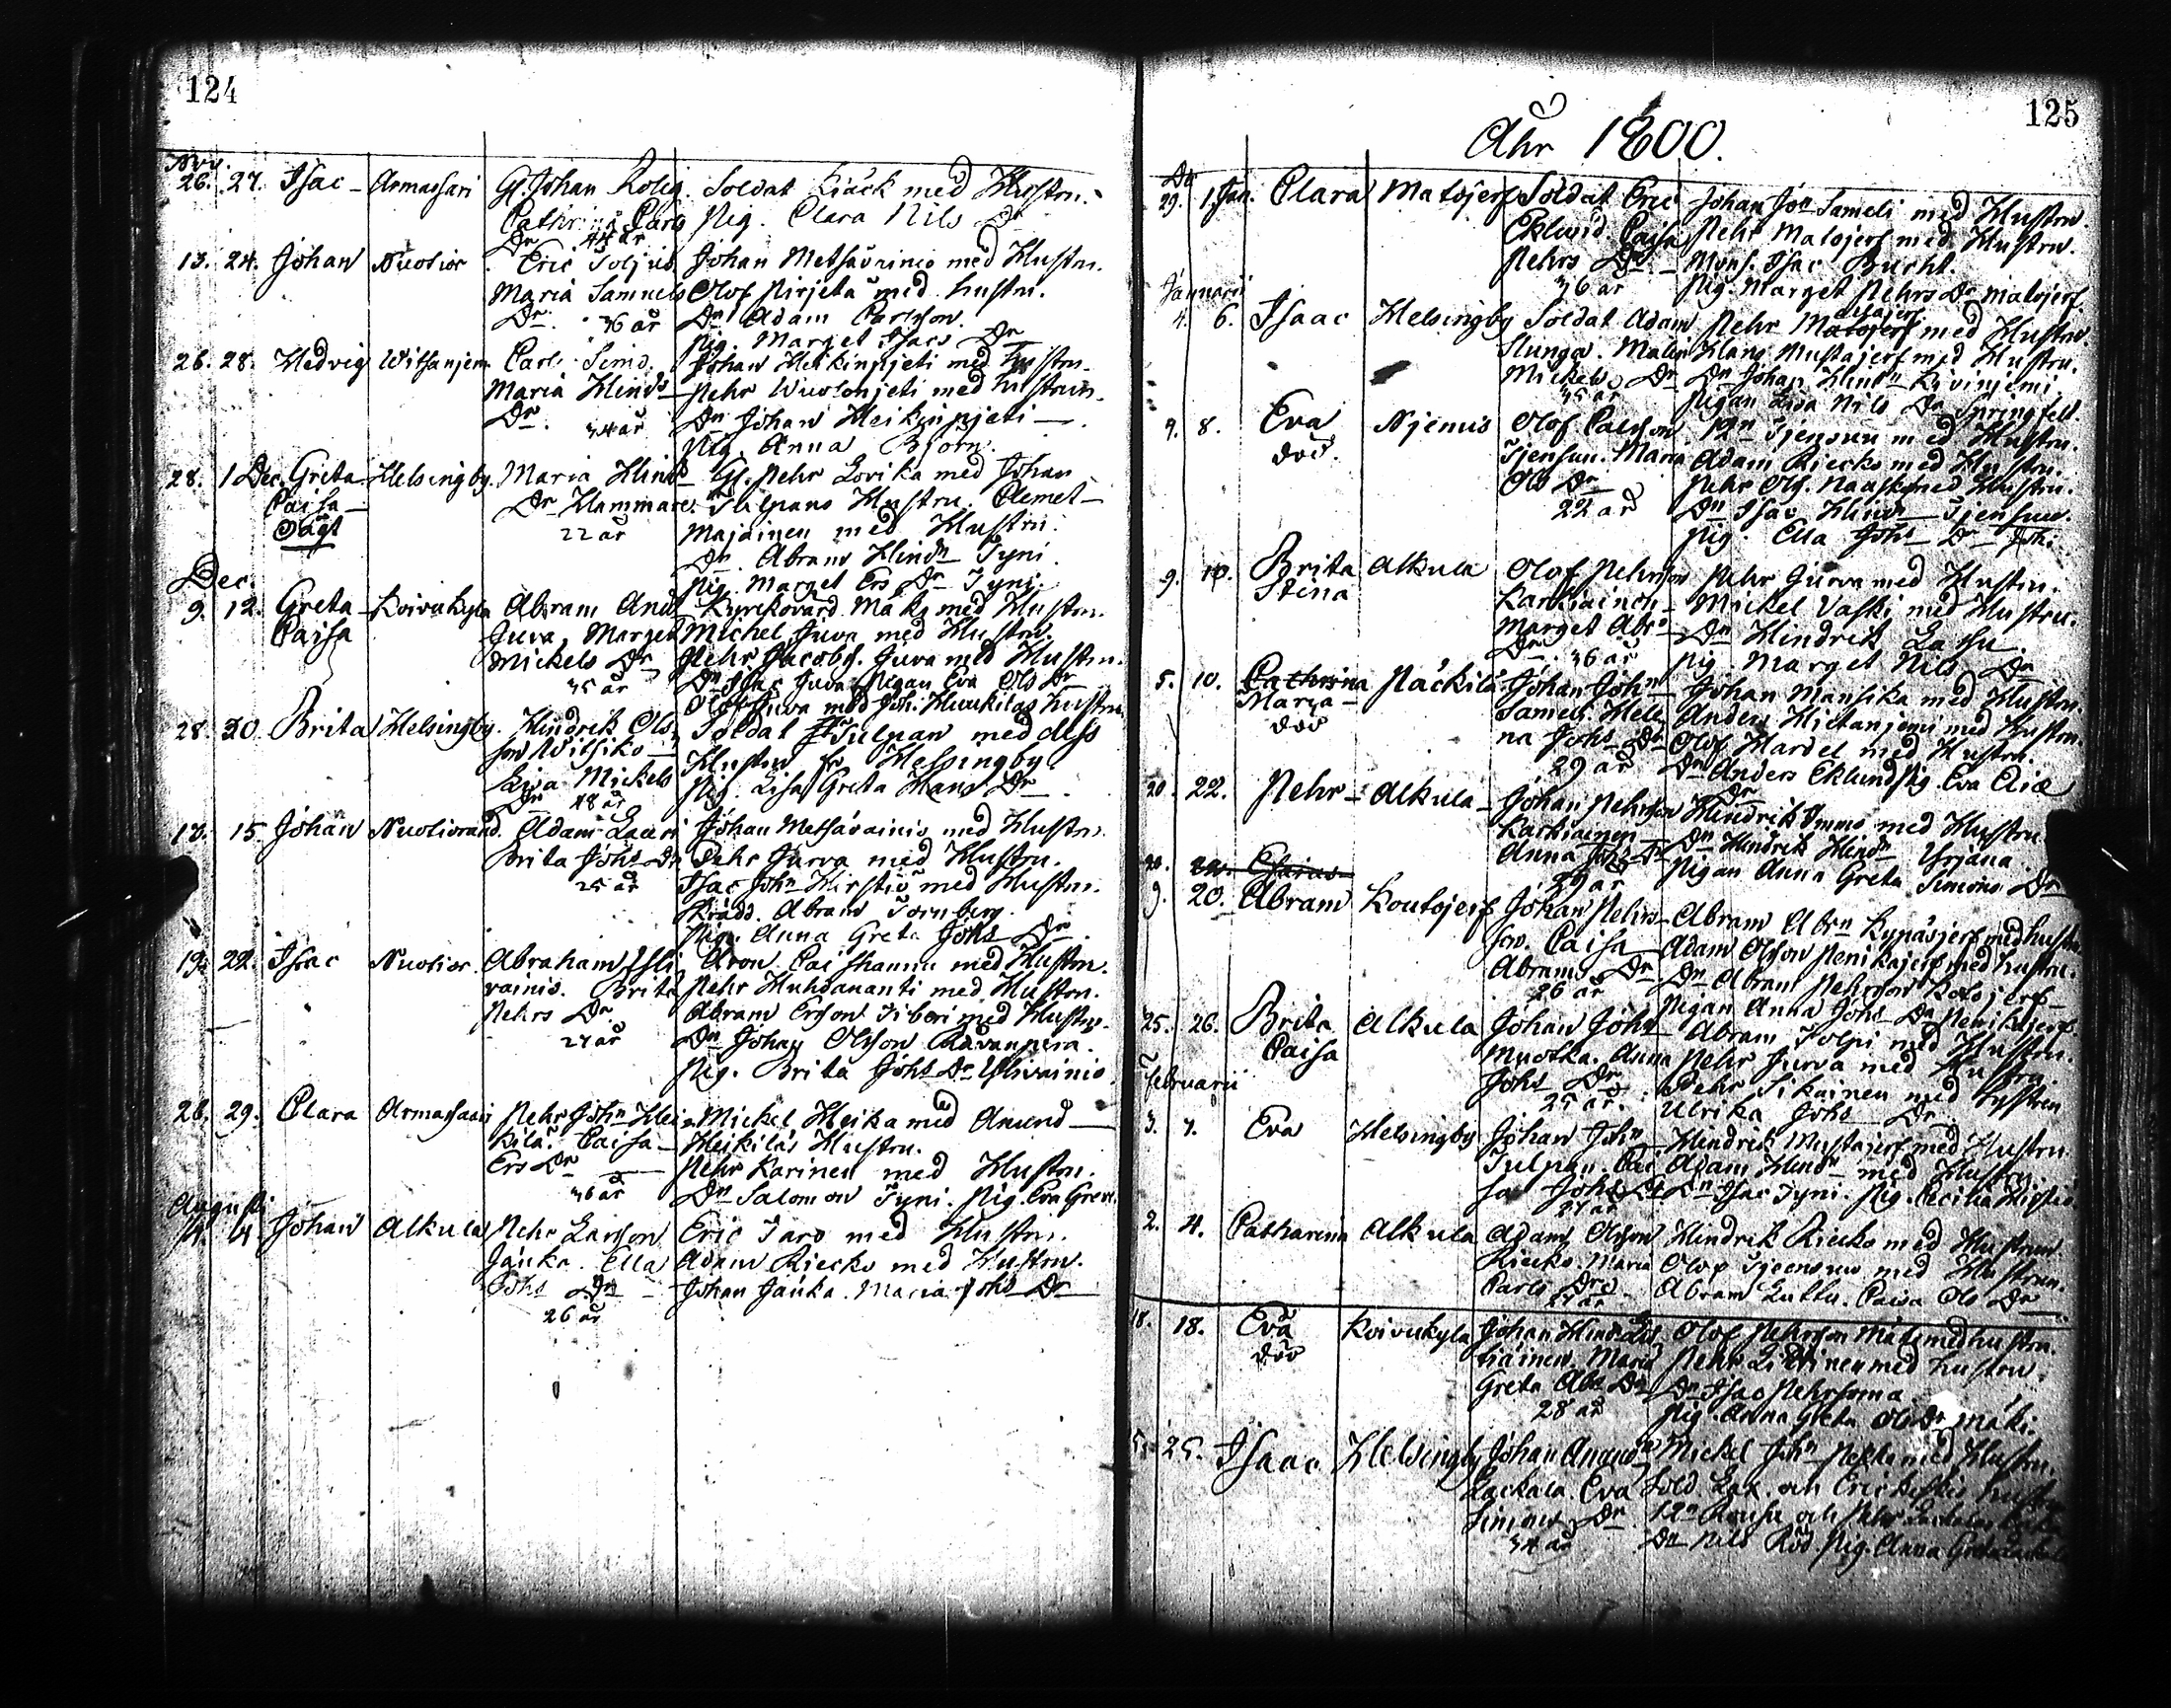 124
Nov.
26. 27. Isac - Armassari Gf. Johan Rolig. Soldat Kiäck med Hustru.
Cathrina Carls Pig. Clara Nils Dr
Dr 44 år
13. 24. Johan Nuotior Eric Soljus Johan Metsävainio med Hustru.
Maria Samuels Olof Pirjetä med hustru.
Dr. 36 år Dn Adam Carlsson.
Pig. Marget Isacs Dr
26. 28. Hedvig Witsanjem Carl Simd. Johan Heikinpjeti med Hustru.
Maria Hind's Pehr Wuolonjeti med hustrun.
Dr. 34 år Dn Johan Heikinpjeti
Pig. Anna Björn.
28. 1 Dec. Greta Helsingby. Maria Hind's Gf. Pehr Lovika med Johan
Caisa Dr Hammare. Tulpans Hustru. Clemet
oägt 22 år Majainen med Hustru.
Dr. Abram Hindn Tyni
Dec. Pig. Marget Ers Dr Tyni
9. 12. Greta Koivukyla Abram And Kyrkovärd Mäki med Hustru.
Caisa Juva, Marget Michel Juva med Hustru.
Mickels Dr Pehr Jacobs. Juva med Hustru.
35 år Dn Isac Juva Pigan Eva Ols Dr
Olof Juva med Joh. Heikilas Hustru
28. 30. Brita Helsingby. Hindrik Ols Soldat Tulpan med dess
son Witsiko Hustru fr Helsingby.
Lisa Mickels Pig. Lisa Greta Hans Dr
Dr 48 år
13. 15. Johan Nuoliorand. Adam Lauri Johan Metsävainio med Hustru.
Brita Johs Dr Pehr Jurva med Hustru.
25 år Isac John Hirstiö med Hustru.
Skrädd. Abram Tornberg.
Pig. Anna Greta Johs Dr
19. 22. Isac Nuolior. Abraham Ylivainio. Aron Caishannu med Hustru.
Brita Pehr Huhdananti med Hustru.
Pehrs Dr Abram Erson Tiberi med Hustru.
27 år Dn Johan Olsson Kadvanpera.
Pig. Brita Johs Dr Ylivainio.
28. 29. Clara Armassari Pehr John Hei Mickel Heika med Amund
kilä. Caisa Heikiläs Hustru.
Ers Dr Pehr Karinen med Hustru.
36 år Dn Salomon Tyni. Pig. Eva Grew.
Augusti
14. Johan Alkula Pehr Larsson Eric Taro med Hustru.
Jänkä. Ella Adam Riecko med Hustru.
Johs Dr Johan Jänkä. Maria Johs Dr
26 år
125
Åhr 1800.
De
29. 1. Jan. Clara Matojerf Soldat Eric Johan Jön Sameli med Hustru.
Eklund. Caisa Pehr Matojerf med Hustru.
Pehrs Dr Mons. Isac Bucht.
36 år Pig. Marget Pehrs Dr Matojerf.
Januarii
4. 6. Isaac Helsingby Soldat Adam Pehr Matojerf med Hustru.
Slunga. Malin Hans Mustajerf med Hustru.
Mickels Dr Dn Johan Hindn Kivinjemi
35 år Pigan Lisa Nils Dr Springfelt.
9. 8. Eva Njemis Olof Carlson 12n Tjensuu med Hustru.
död. Tjensuu. Maria Adam Riecko med Hustru.
Ols Dr Pehr Ols. Naaski med Hustru.
22 år Dn Isac Hindn Tjensuu.
Pig. Ella Johs Dr
9. 10. Brita Alkula Olof Pehrson Pehr Jurva med Hustru.
Stina Karkiainen Mickel Vaski med Hustru.
Marget Abr. Dn Hindrik Lassu.
Dr. 36 år Pig. Marget Nils Dr
5. 10. Cathrina Päckilä Johan John Johan Mansika med Hustru.
Maria Sameli. Hele Anders Hietanjemi med Hustru.
död na Johs Dr Olof Hardel med Hustru.
29 år Dn Anders Eklund Pig. Eva Ersdr
20. 22. Pehr Alkula Johan Pehrson Hindrik Ymmo med Hustru
Karkiainen Dn Hindrik Hindn Yrjänä
Anna Johs Dr Pigan Anna Greta Simons Dr
29 år
9. 20. Abram Koutojerf Johan Pehrs Abram Abrn Kypäsjerf med hustru.
son. Caisa Adam Olsson Penikajerf med hustru.
Abrams Dr Dn Abram Pehrsson Kotojerf
26 år Pigan Anna Johs Dr Penikajerf
25. 26. Brita Alkula Johan Johs Abram Tolpi med Hustru.
Caisa Muotka. Anna Pehr Jurva med Hustru.
Johs Dr Pehr Sikainen med Syster
25 år. Ulrika Johs Dr
Februarii
3. 7. Eva Helsingby Johan John Hindrik Mustajerf med Hustru.
Tulpan. Cai Adam Hindn med Hustru.
sa Johs Dr Dn Isac Tyni. Pig. Cecilia
27 år
2. 4. Catharina Alkula Adam Olsson Hindrik Riecko med Hustrun.
Riecko. Maria Olof Tjeensuu med Hustrun.
Carls Dr Abram Luttu. Caisa Ols Dr
27 år
18. 18. Eva Koivukyla Johan Hind Lis Olof Pehrson Mäki med hustru.
död tiäinen. Maria Pehr Littinen med hustru.
Greta Abr. Dr Dn Isac Pehrsson
28 år Pig. Anna Greta Ols Dr Mäki.
25. Isaac Helsingby Johan Anund Mickel John Pekka med Hustru.
Lackala. Eva Sold. Lax och Eric hustru
Simons Dr. 12n och Pehr Lackalas
34 år Dn Nils Röd Pig. Anna Greta Lackala